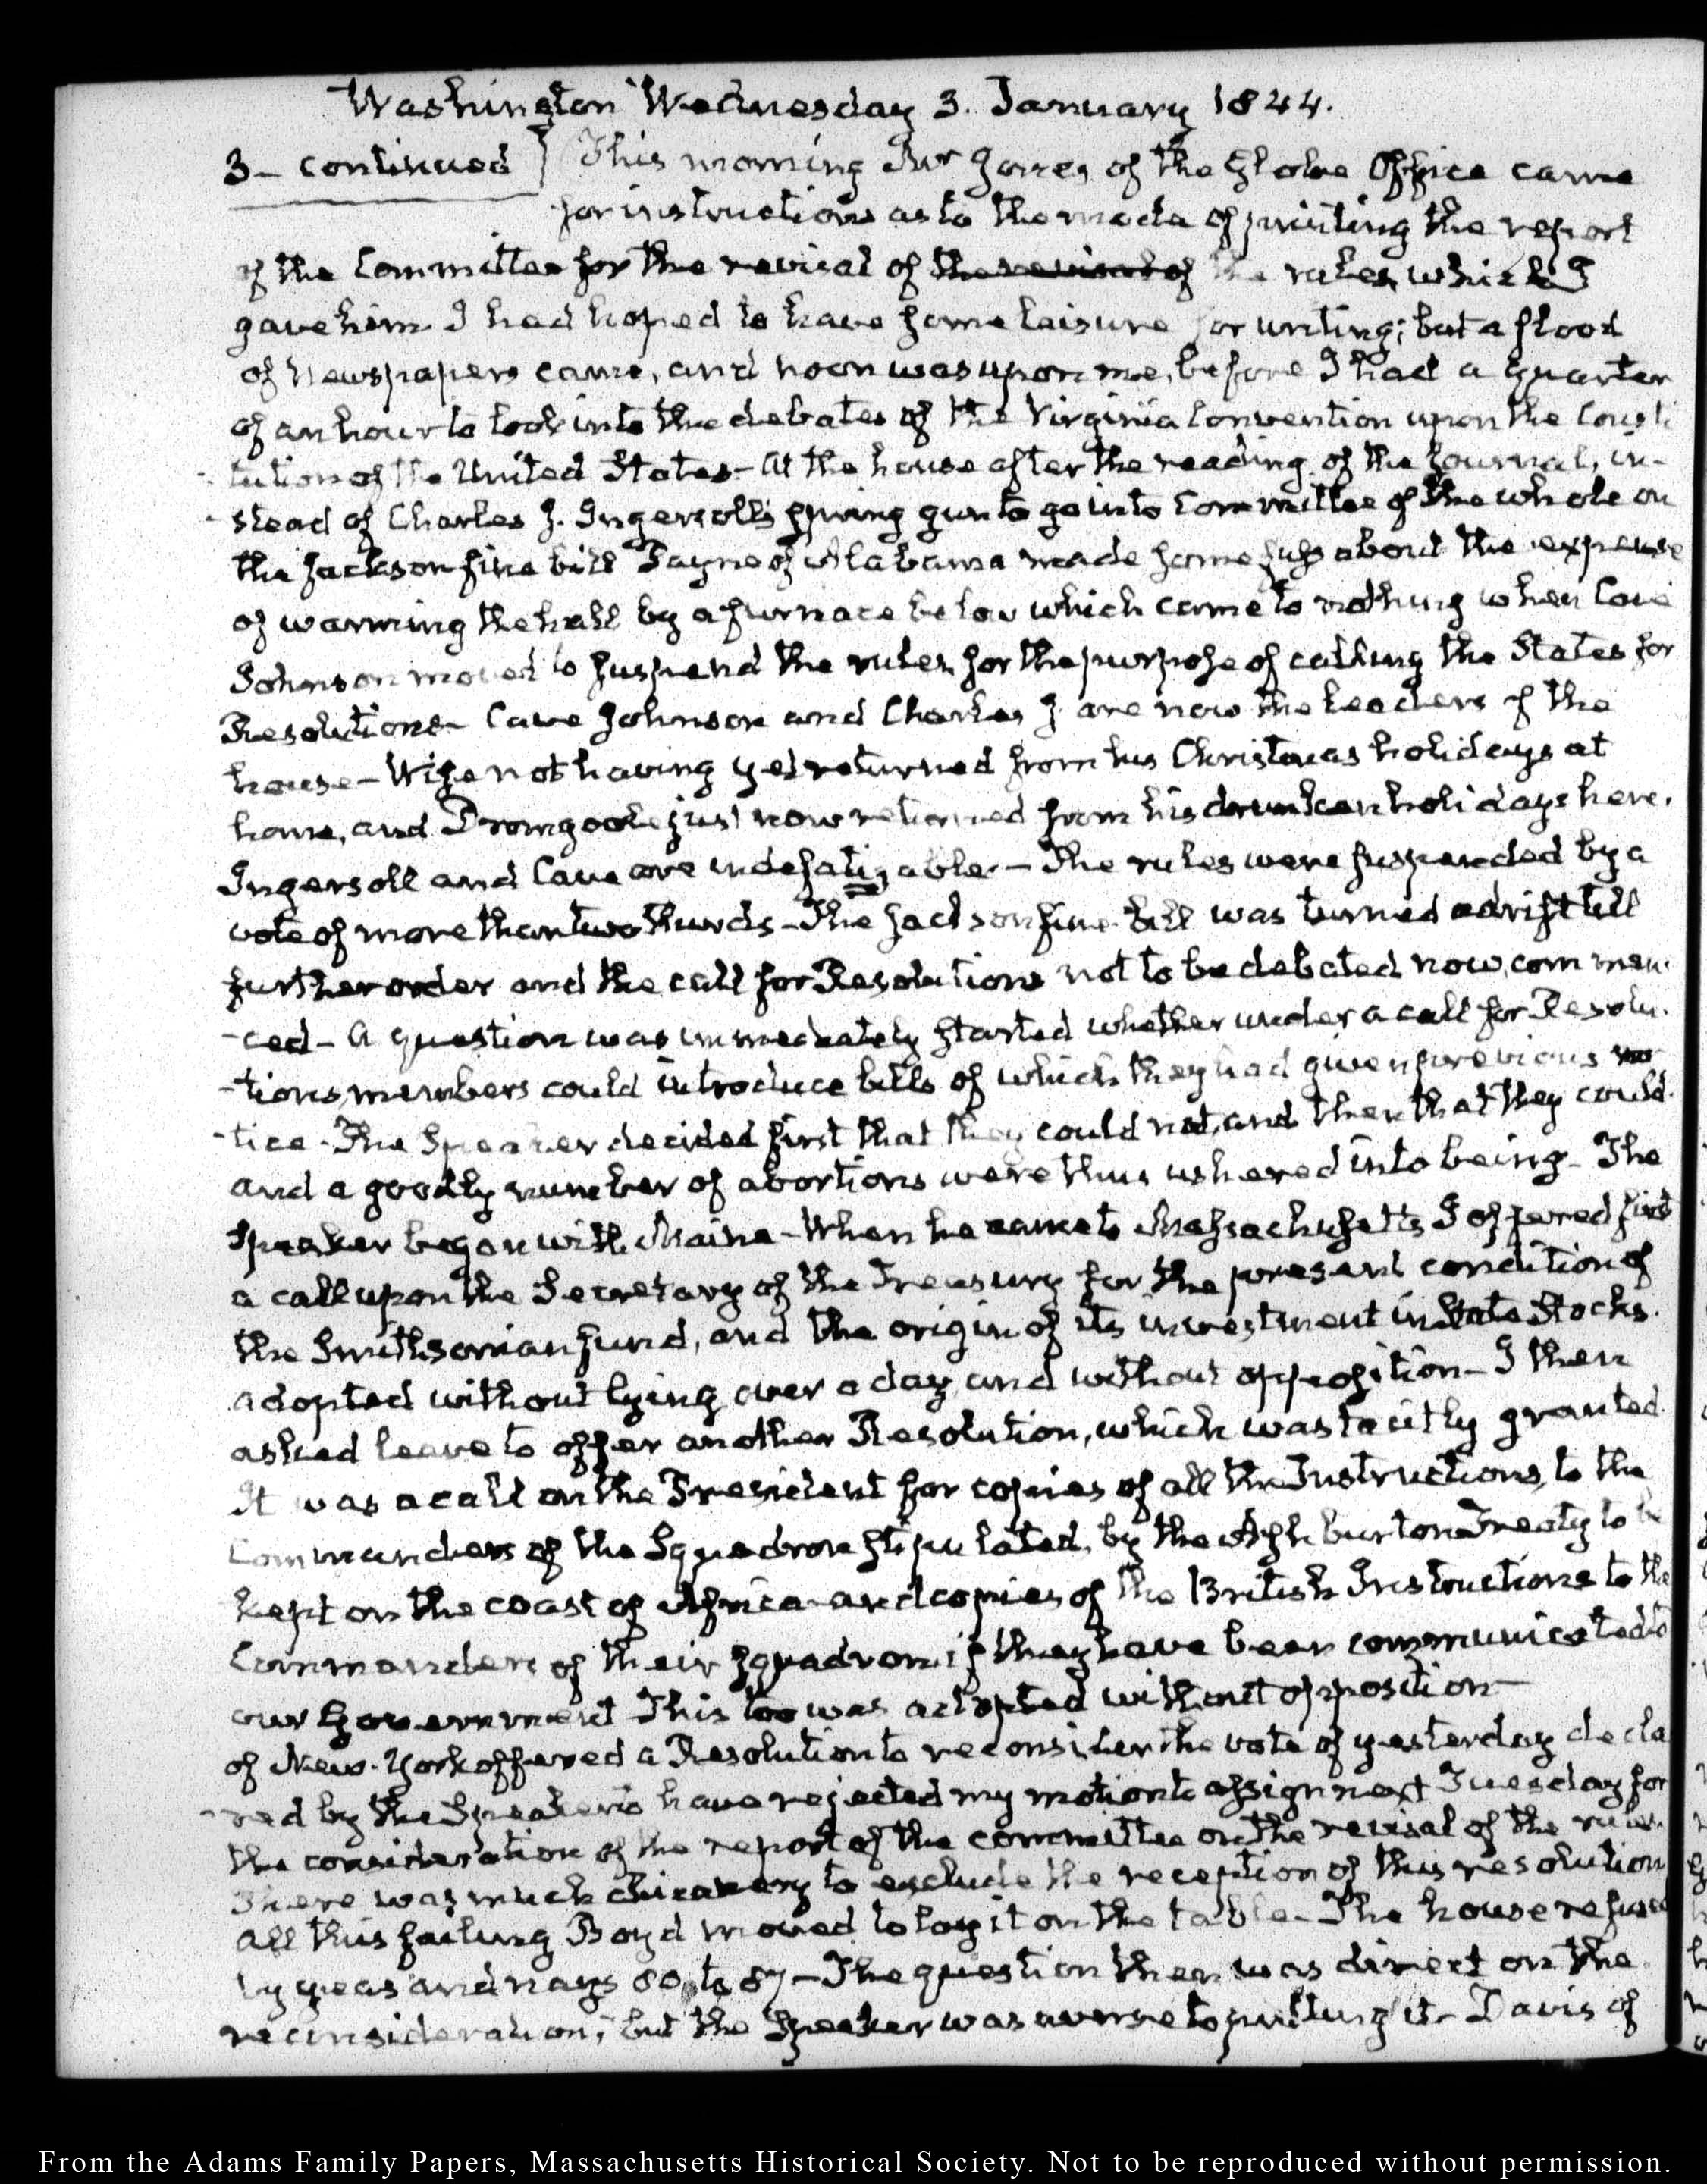 Washington Wednesday 3. January 1844.
3 – continued } This morning Mr Jones, of the Globe Office came
for instructions as to the mode of printing the report
of the Committee for the revisal of the revisal of the rules, which I
gave him. I had hoped to have some leisure for writing; but a flood
of Newspapers came, and noon was upon me, before I had a quarter
of an hour to look into the debates of the Virginia Convention upon the Consti
tution of the United States – At the house after the reading of the Journal, in-
-stead of Charles J. Ingersoll's spring gun to go into Committee of the whole on
the Jackson fine bill Payne of Alabama made some fuss about the expense
of warming the hall by a furnace below which came to nothing when Cave
Johnson moved to suspend the rules, for the purpose of calling the States for
Resolutions – Cave Johnson and Charles J. are now the leaders of the
house – Wise not having yet returned from his Christmas holidays at
home, and Dromgoole just now returned from his drunken holidays here.
Ingersoll and Cave are indefatigable. – The rules were suspended by a
vote of more than two thirds – The Jackson fine bill was turned adrift till
further order and the call for Resolutions not to be debated now, commen-
-ced – A question was immediately started whether under a call for Resolu-
-tions, members could introduce bills of which they had given previous no
-tice – The Speaker decided first that they could not, and then that they could.
and a goodly number of abortions were thus ushered into being – The
Speaker began with Maine – When he came to Massachusetts I offered first
a call upon the Secretary of the Treasury for the present condition of
the Smithsonian fund, and the origin of its investment in State Stocks.
adopted without lying over a day, and without opposition – I then
asked leave to offer another Resolution, which was tacitly granted.
It was a call on the President for copies of all the Instructions, to the
Commanders of the Squadron stipulated, by the Ashburton Treaty to be
kept on the coast of Africa – and copies of the British Instructions to the
Commanders of their squadron if they have been communicated to
our Government This too was adopted without opposition –
of New-York offered a Resolution to reconsider the vote of yesterday decla
-red by the Speaker to have rejected my motion to assign next Tuesday for
the consideration of the report of the committee on the revisal of the rules.
There was much chicanery to exclude the reception of this resolution
All this failing Boyd moved to lay it on the table – The house refused
by yeas and nays 80 to 87 – The question then was direct on the
reconsideration; but the Speaker was averse to putting it – Davis of
From the Adams Family Papers, Massachusetts Historical Society. Not to be reproduced without permission.